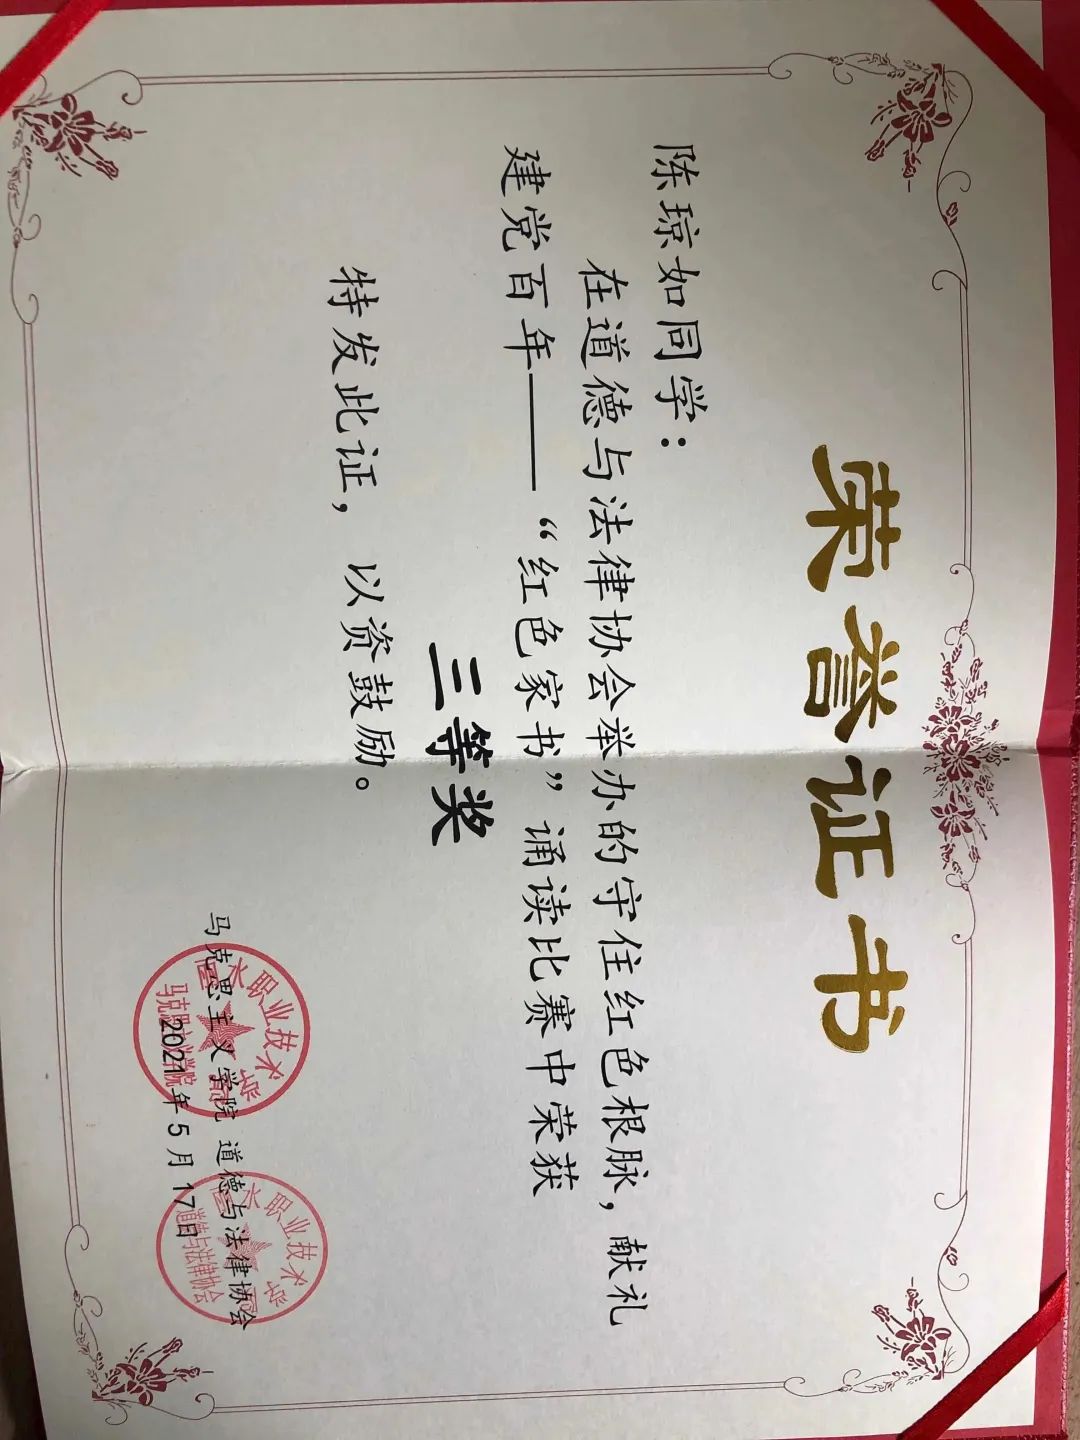 荣誉证书
陈琼如同学：
在道德与法律协会举办的守住红色根脉，献礼
建党百年——“红色家书”诵读比赛中荣获
三等奖
特发此证，以资鼓励。
马克思主义学院 道德与法律协会
2021年5月17日
水职业技术学
马克思主义学院
水职业技术学
道德与法律协会